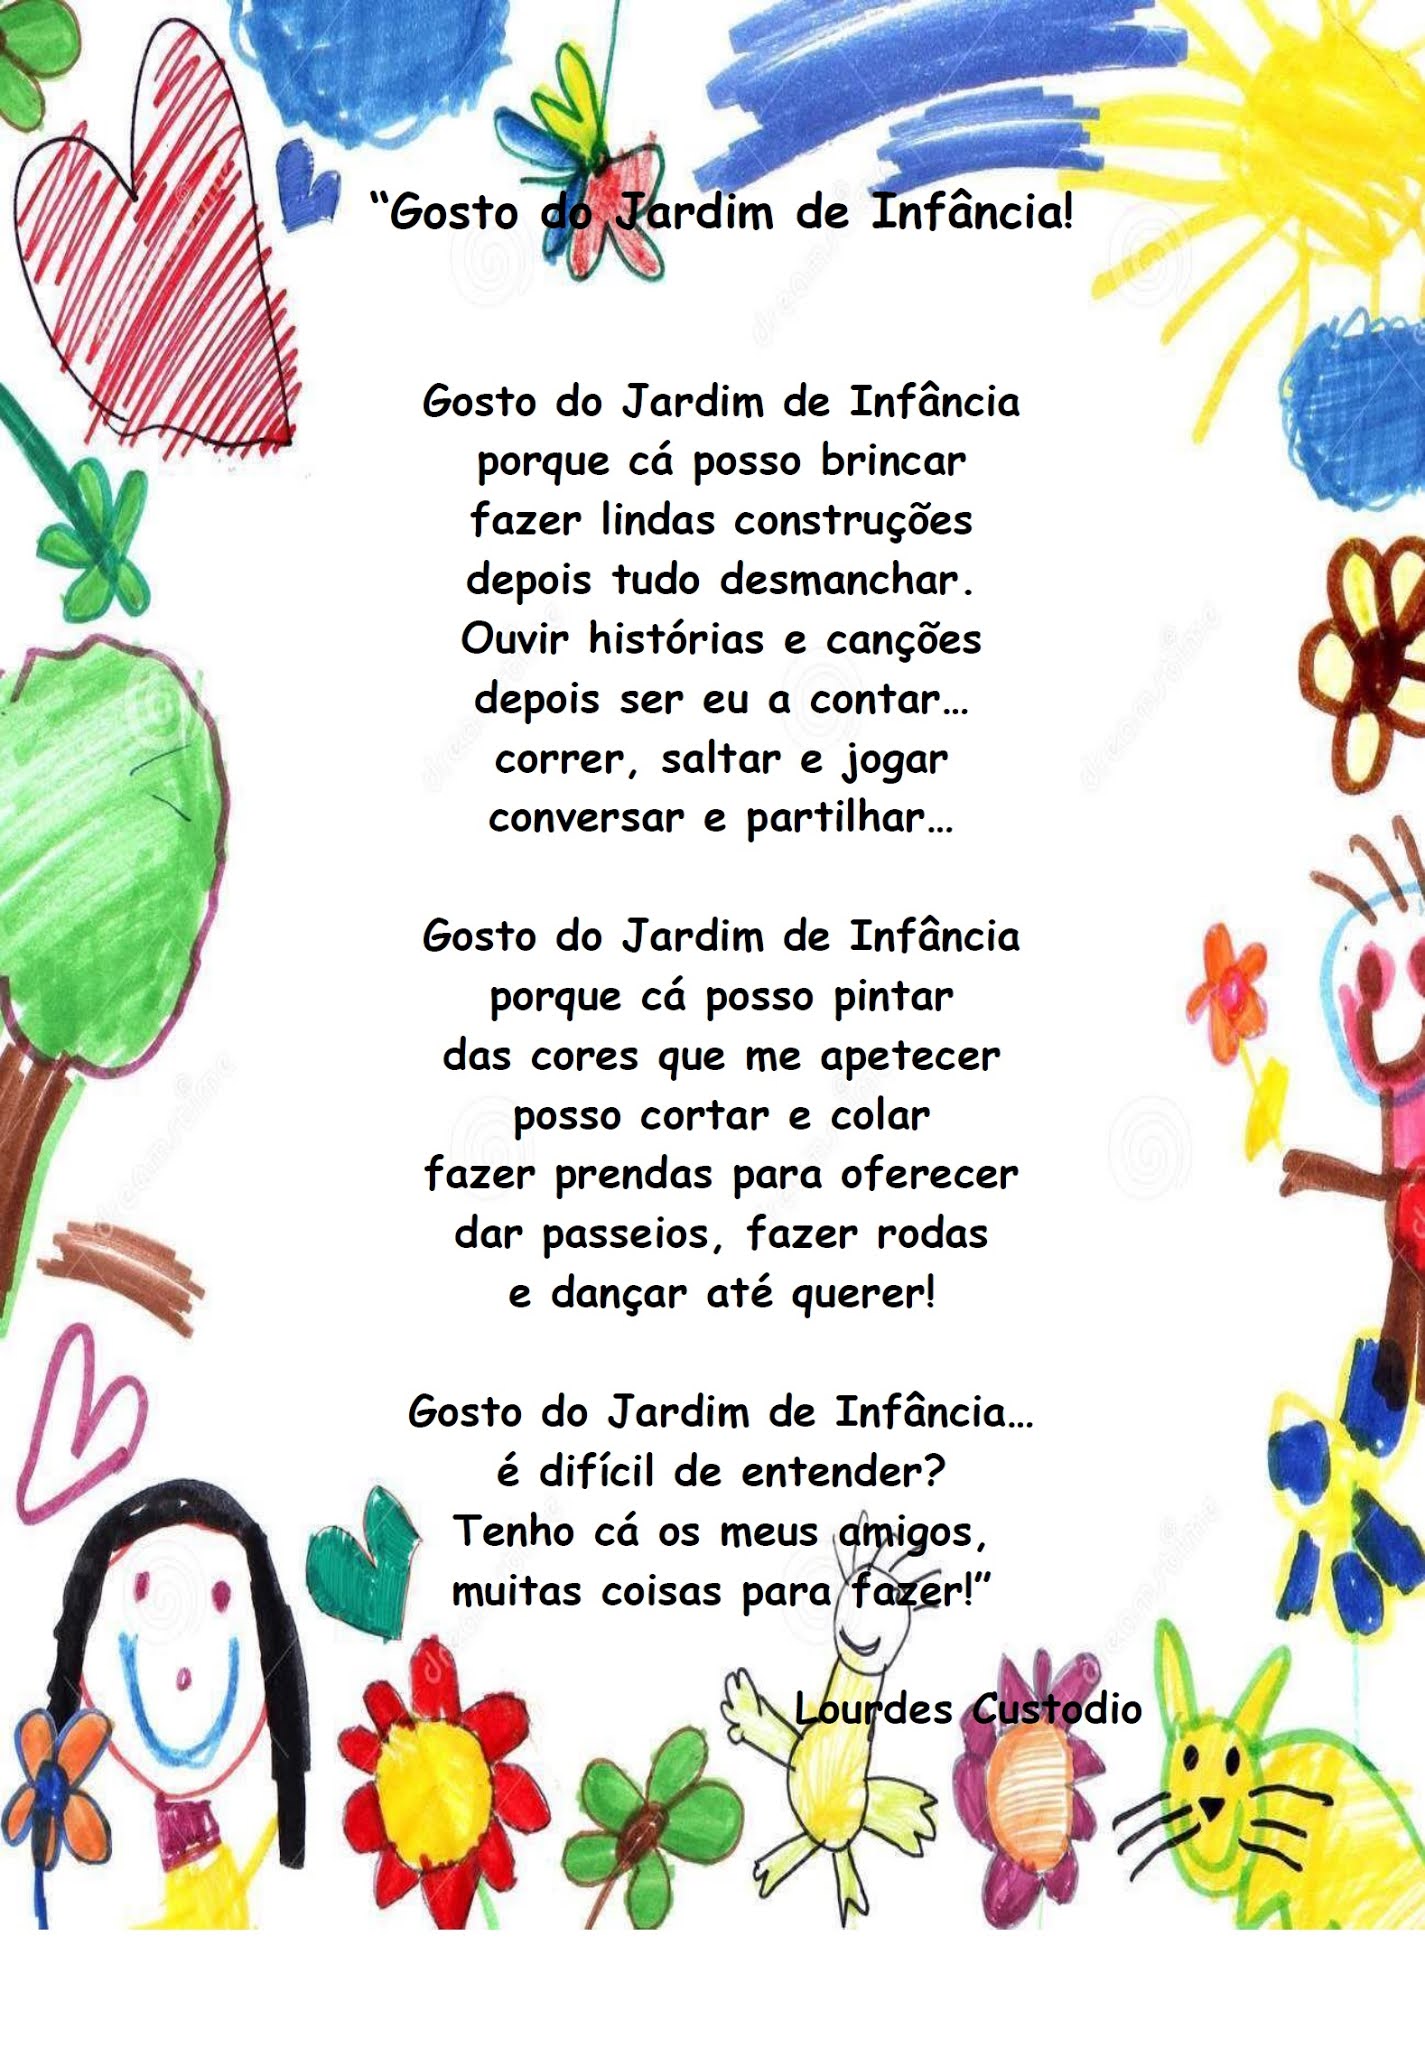 “Gosto do Jardim de Infância!
Gosto do Jardim de Infância
porque cá posso brincar
fazer lindas construções
depois tudo desmanchar.
Ouvir histórias e canções
depois ser eu a contar…
correr, saltar e jogar
conversar e partilhar…
Gosto do Jardim de Infância
porque cá posso pintar
das cores que me apetecer
posso cortar e colar
fazer prendas para oferecer
dar passeios, fazer rodas
e dançar até querer!
Gosto do Jardim de Infância…
é difícil de entender?
Tenho cá os meus amigos,
muitas coisas para fazer!”
Lourdes Custodio